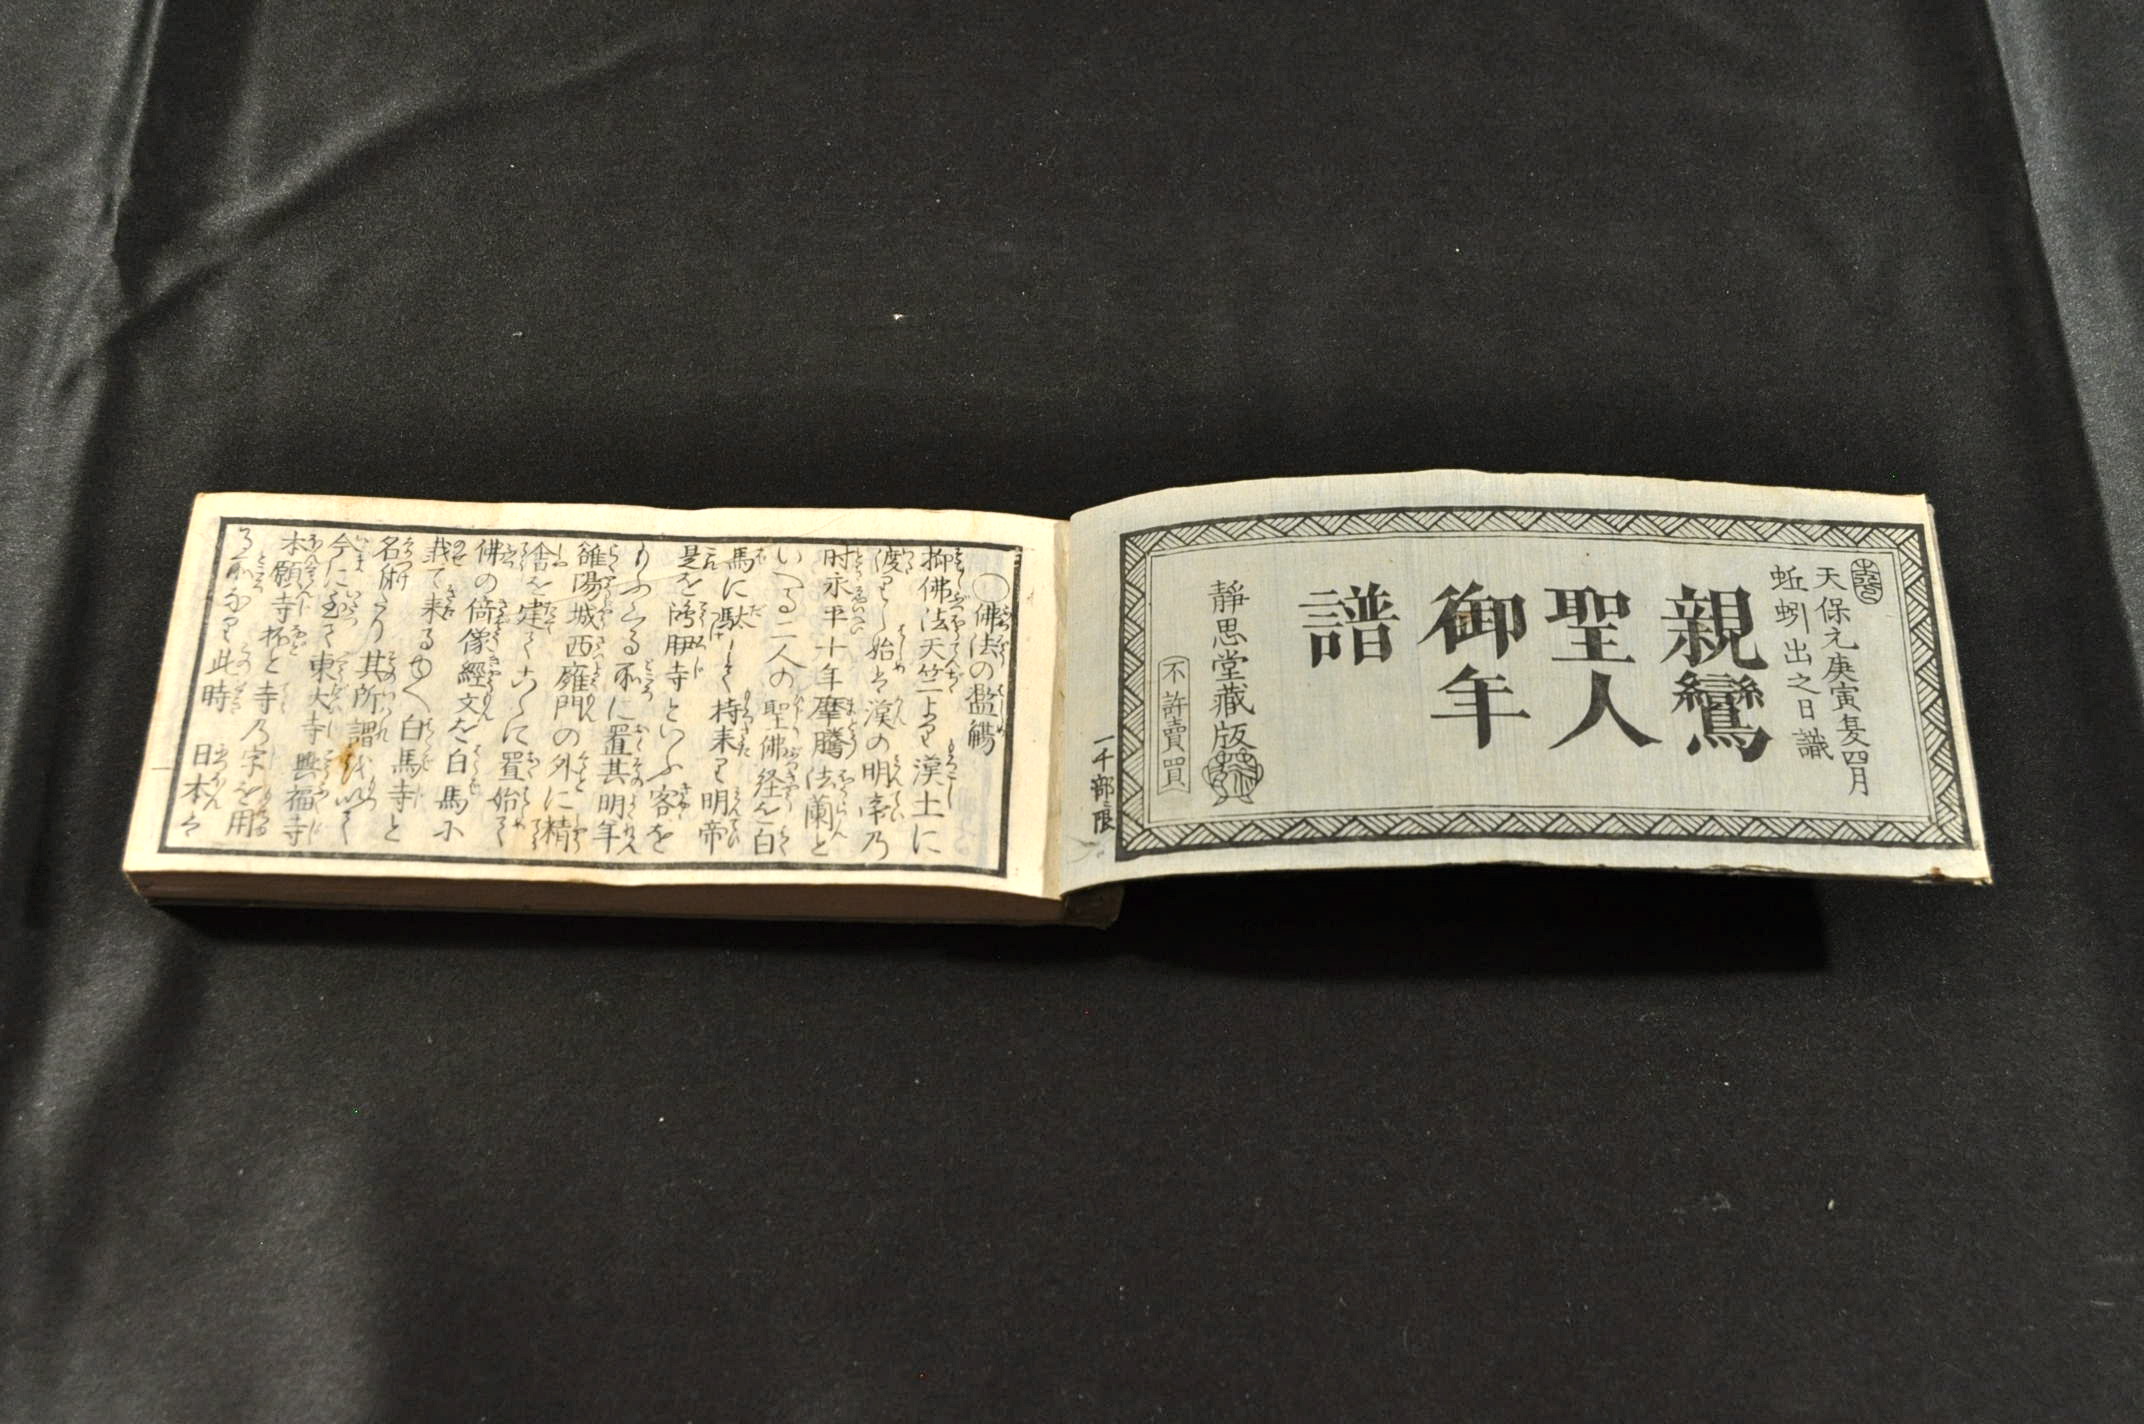 天保元庚寅夏四月
蚯蚓出之日識
親鸞
聖人
御年
譜
靜思堂藏版
不許賣買
一千部限
〇佛法の濫觴
抑佛法天竺より漢土に
渡りし始は漢の明帝乃
時永平十年摩騰法蘭と
いへる二人の聖佛経を白
馬に駄して持来り明帝
是を鴻臚寺といふ客を
もふくる所に置其明年
雒陽城西雍門の外に精
舎を建てこゝに置始て
佛の倚像經文を白馬に
載て来るゆへ白馬寺と
名附たり其所謂を以て
今に至て東大寺興福寺
本願寺抔と寺乃字を用
る所なり此時 日本は